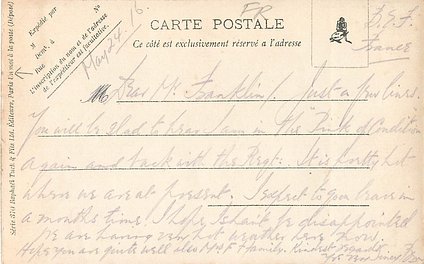 Expédié par
M
Demt. à
Rue
No
L'inscription du nom et de l'adresse
de l'expéditeur est facultative.
May 24. 16.
FR
CARTE POSTALE
Ce côté est exclusivement réservé a l'adresse
B.E.F.
France
Série 3710 Raphael Tuck & Fils Ltd. Éditeurs, Paris
M Dear Mr. Franklin/ Just a few lines.
You will be glad to hear I am in the "Pink of Condition"
again and back with the Regt. It is hot
where we are at present. I expect to your leave in
a months time. I hope I shant be disappointed
We are having very hot weather here now.
Hope you are quite well also Mrs F & family. Kindest regards